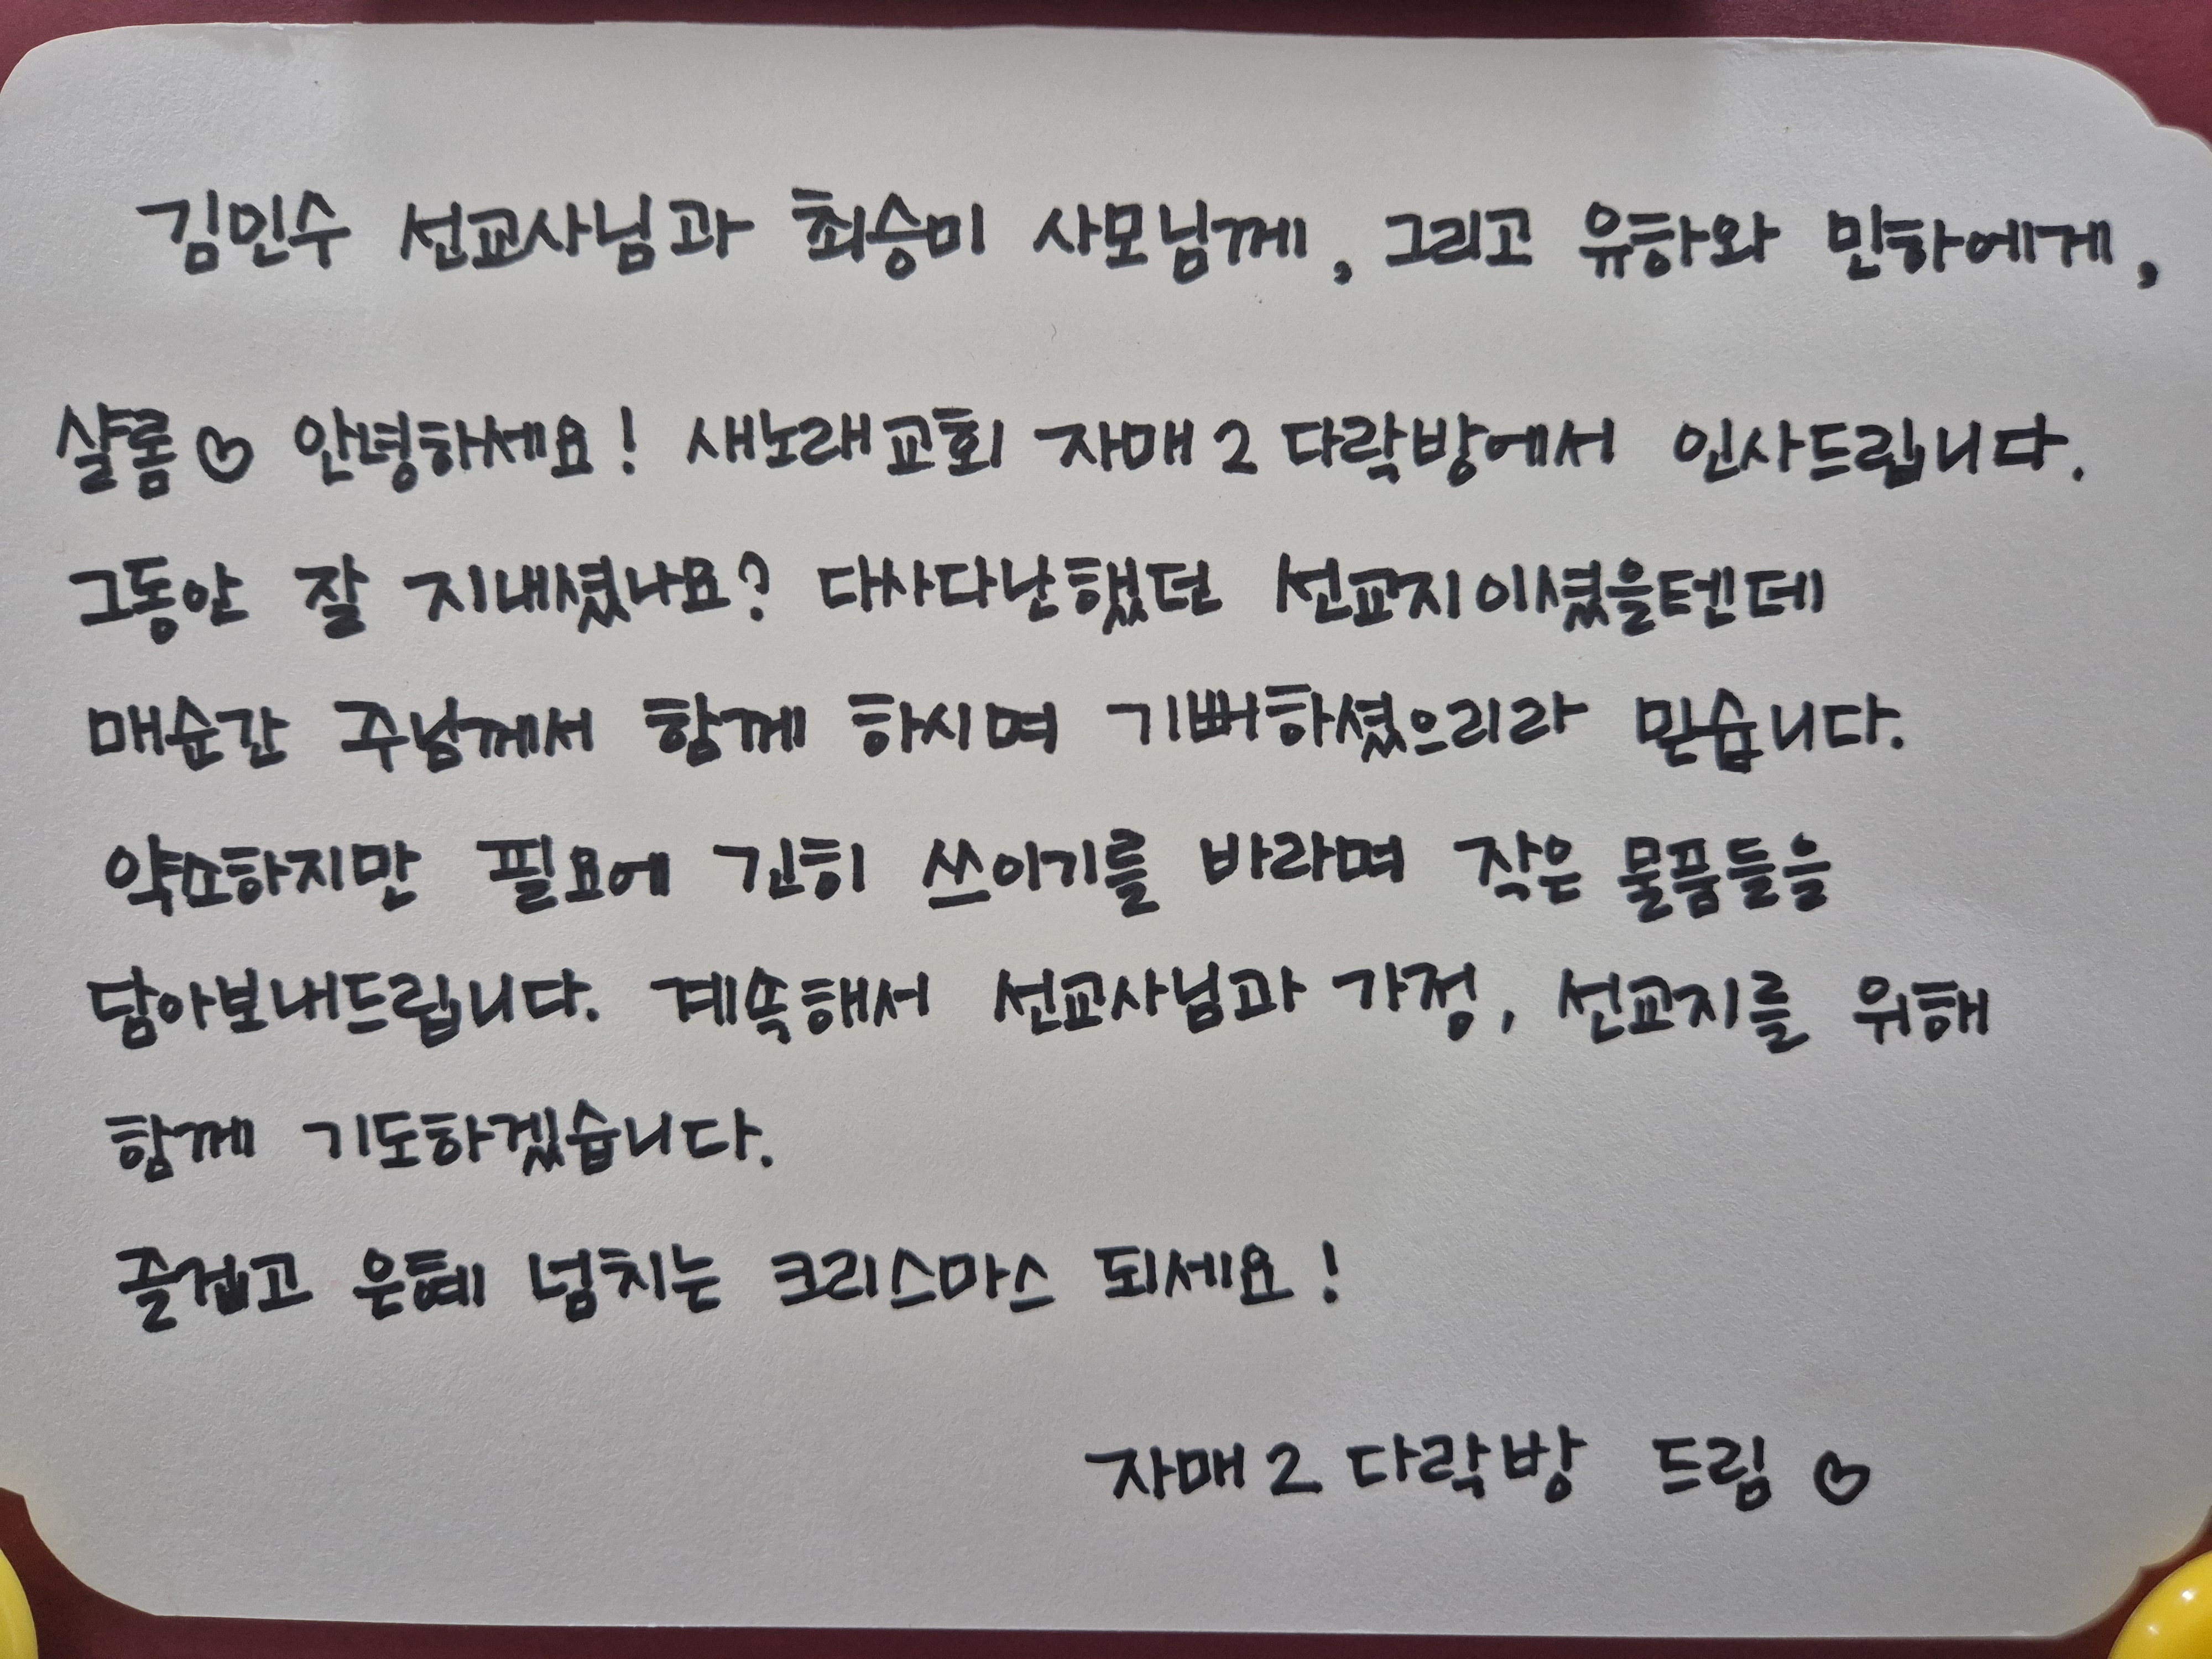 김민수 선교사님과 최승미 사모님께, 그리고 유하와 민하에게,
샬롬♡ 안녕하세요! 새노래교회 자매2 다락방에서 인사드립니다.
그동안 잘 지내셨나요? 다사다난했던 선교지이셨을텐데
매순간 주님께서 함께 하시며 기뻐하셨으리라 믿습니다.
약소하지만 필요에 긴히 쓰이기를 바라며 작은 물품들을
담아보내드립니다. 계속해서 선교사님과 가정, 선교지를 위해
함께 기도하겠습니다.
즐겁고 은혜 넘치는 크리스마스 되세요!
자매2 다락방 드림♡